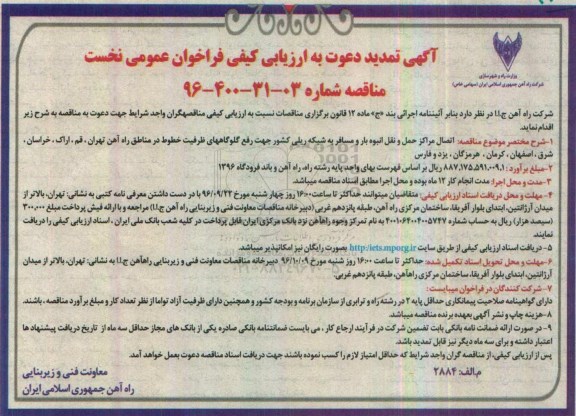 آگهی تمدید دعوت به ارزیابی کیفی فراخوان عمومی نخست
مناقصه شماره ۰۳-۳۱-۴۰۰-۹۶
وزارت راه و شهرسازی
شرکت راه آهن جمهوری اسلامی ایران (سهامی خاص)
شرکت راه آهن ج.ا.ا در نظر دارد بنابر آئیننامه اجرائی بند «ج» ماده ۱۲ قانون برگزاری مناقصات نسبت به ارزیابی کیفی مناقصهگران واجد شرایط جهت دعوت به مناقصه به شرح زیر
اقدام نماید.
۱-شرح مختصر موضوع مناقصه: اتصال مراکز حمل و نقل انبوه بار و مسافر به شبکه ریلی کشور جهت رفع گلوگاههای ظرفیت خطوط در مناطق راه آهن تهران، قم، اراک، خراسان،
شرق، اصفهان، کرمان، هرمزگان، یزد و فارس
۲-مبلغ برآورد: ۸۸۷،۱۷۵،۵۹۱،۰۰۹،۱ ریال بر اساس فهرست بهای واحد پایه رشته راه، راه آهن و باند فرودگاه ۱۳۹۶
۳-مدت و محل اجرا: مدت انجام کار ۱۲ ماه بوده و محل اجرا مطابق اسناد مناقصه میباشد.
۴- مهلت و محل دریافت اسناد ارزیابی کیفی: متقاضیان میتوانند حداکثر تا ساعت ۱۶:۰۰ روز چهار شنبه مورخ ۹۶/۰۹/۲۲ با در دست داشتن معرفی نامه کتبی به نشانی: تهران، بالاتر از
میدان آرژانتین، ابتدای بلوار آفریقا، ساختمان مرکزی راه آهن، طبقه پانزدهم غربی (دبیرخانه مناقصات معاونت فنی و زیربنایی راه آهن ج.ا.ا) مراجعه و با ارائه فیش پرداخت مبلغ ۳۰۰,۰۰۰
(سیصد هزار) ریال به حساب شماره ۴۰۰۱۰۶۴۰۰۴۰۰۵۷۴۷ به نام تمرکز وجوه راهآهن نزد بانک مرکزی ایران قابل پرداخت در کلیه شعب بانک ملی ایران، اسناد ارزیابی کیفی را دریافت
نمایند.
۵- دریافت اسناد ارزیابی کیفی از طریق سایت http://iets.mporg.ir بصورت رایگان نیز امکانپذیر میباشد.
۶-مهلت و محل تحویل اسناد تکمیل شده: حداکثر تا ساعت ۱۶:۰۰ روز شنبه مورخ ۹۶/۱۰/۰۹ دبیرخانه مناقصات معاونت فنی و زیربنایی راهآهن ج.ا.ا به نشانی: تهران، بالاتر از میدان
آرژانتین، ابتدای بلوار آفریقا، ساختمان مرکزی راهآهن، طبقه پانزدهم غربی.
۷-شرکت کنندگان در فراخوان میبایست:
دارای گواهینامه صلاحیت پیمانکاری حداقل پایه ۲ در رشته راه و ترابری از سازمان برنامه و بودجه کشور و همچنین دارای ظرفیت آزاد توأما از نظر تعداد کار و مبلغ برآورد مناقصه، باشند.
۸-هزینه چاپ و نشر آگهی بعهده برنده مناقصه میباشد.
۹- در صورت ارائه ضمانت نامه بانکی بابت تضمین شرکت در فرآیند ارجاع کار، می بایست ضمانتنامه بانکی صادره یکی از بانک های مجاز حداقل سه ماه از تاریخ دریافت پیشنهاد ها
اعتبار داشته و برای سه ماه دیگر نیز قابل تمدید باشد.
پس از ارزیابی کیفی، از مناقصه گران واجد شرایط که حداقل امتیاز لازم را کسب نموده باشند جهت دریافت اسناد مناقصه دعوت بعمل خواهد آمد.
م.الف: ۲۸۸۴
معاونت فنی و زیربنایی
راه آهن جمهوری اسلامی ایران